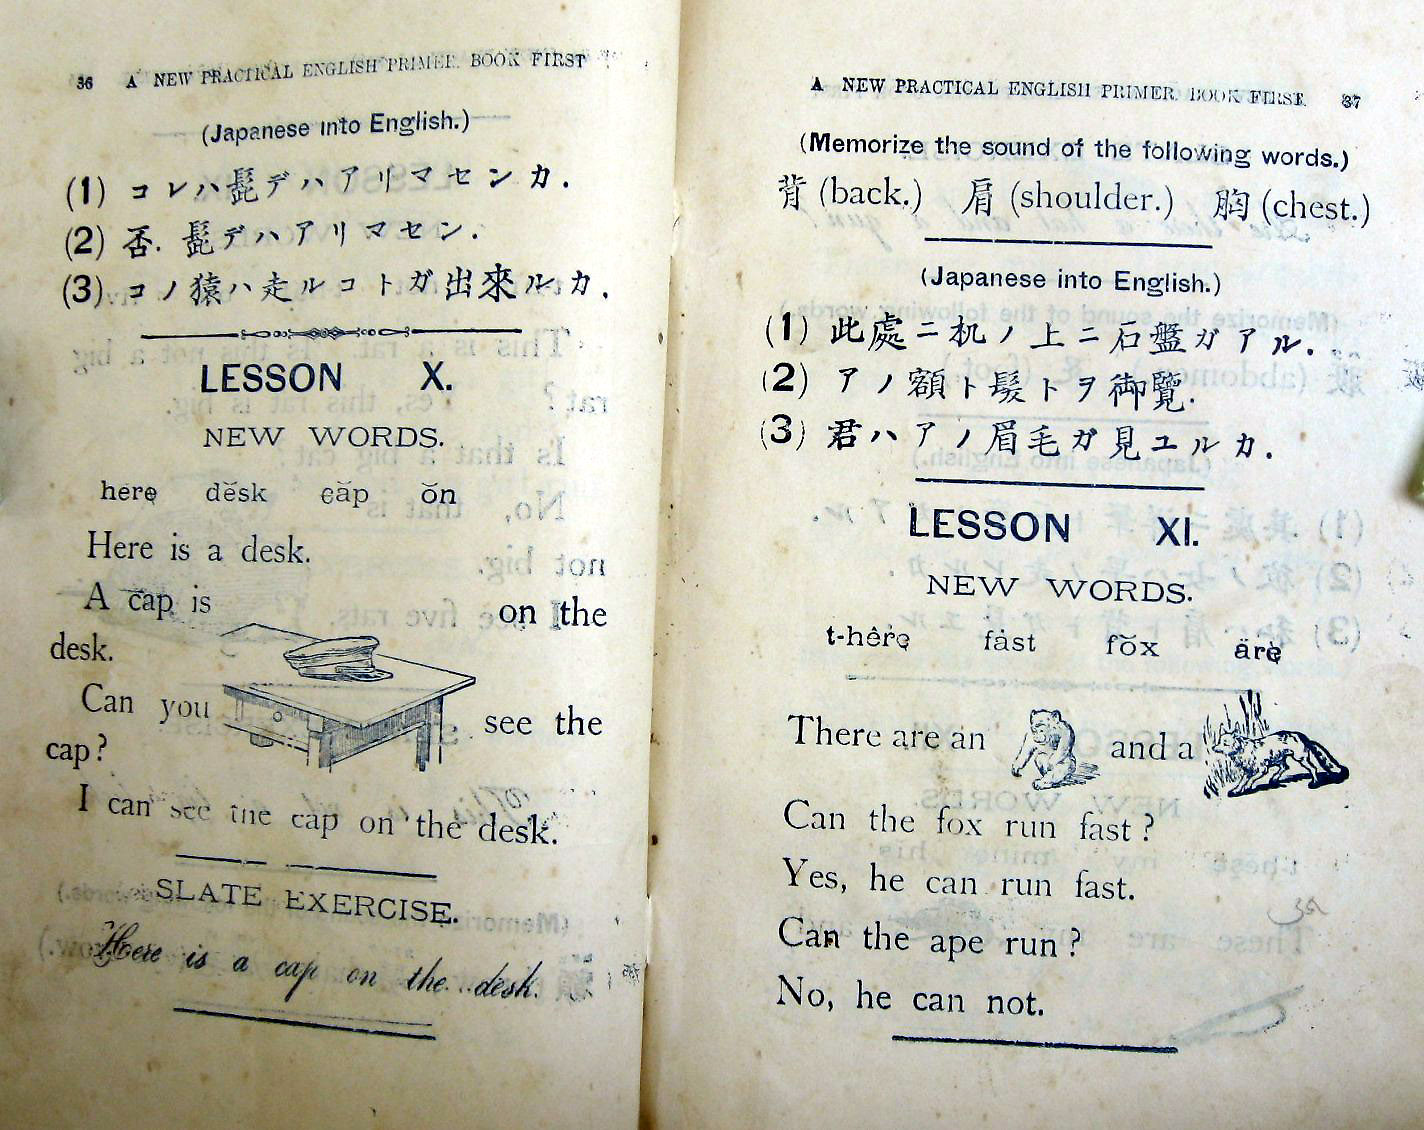 36 A NEW PRACTICAL ENGLISH PRIMER. BOOK FIRST
(Japanese into English.)
(1) コレハ髭デハアリマセンカ.
(2) 否. 髭デハアリマセン.
(3) コノ猿ハ走ルコトガ出來ルカ.
LESSON X.
NEW WORDS.
here desk cap on
Here is a desk.
A cap is on the
desk.
Can you see the
cap?
I can see the cap on the desk.
SLATE EXERCISE.
Here is a cap on the desk.
A NEW PRACTICAL ENGLISH PRIMER. BOOK FIRST. 37
(Memorize the sound of the following words.)
背 (back.) 肩 (shoulder.) 胸 (chest.)
(Japanese into English.)
(1) 此處ニ机ノ上ニ石盤ガアル.
(2) アノ額ト髮トヲ御覽.
(3) 君ハアノ眉毛ガ見ユルカ.
LESSON XI.
NEW WORDS.
t-hêre fȧst fŏx äre
There are an and a
Can the fox run fast?
Yes, he can run fast.
Can the ape run?
No, he can not.